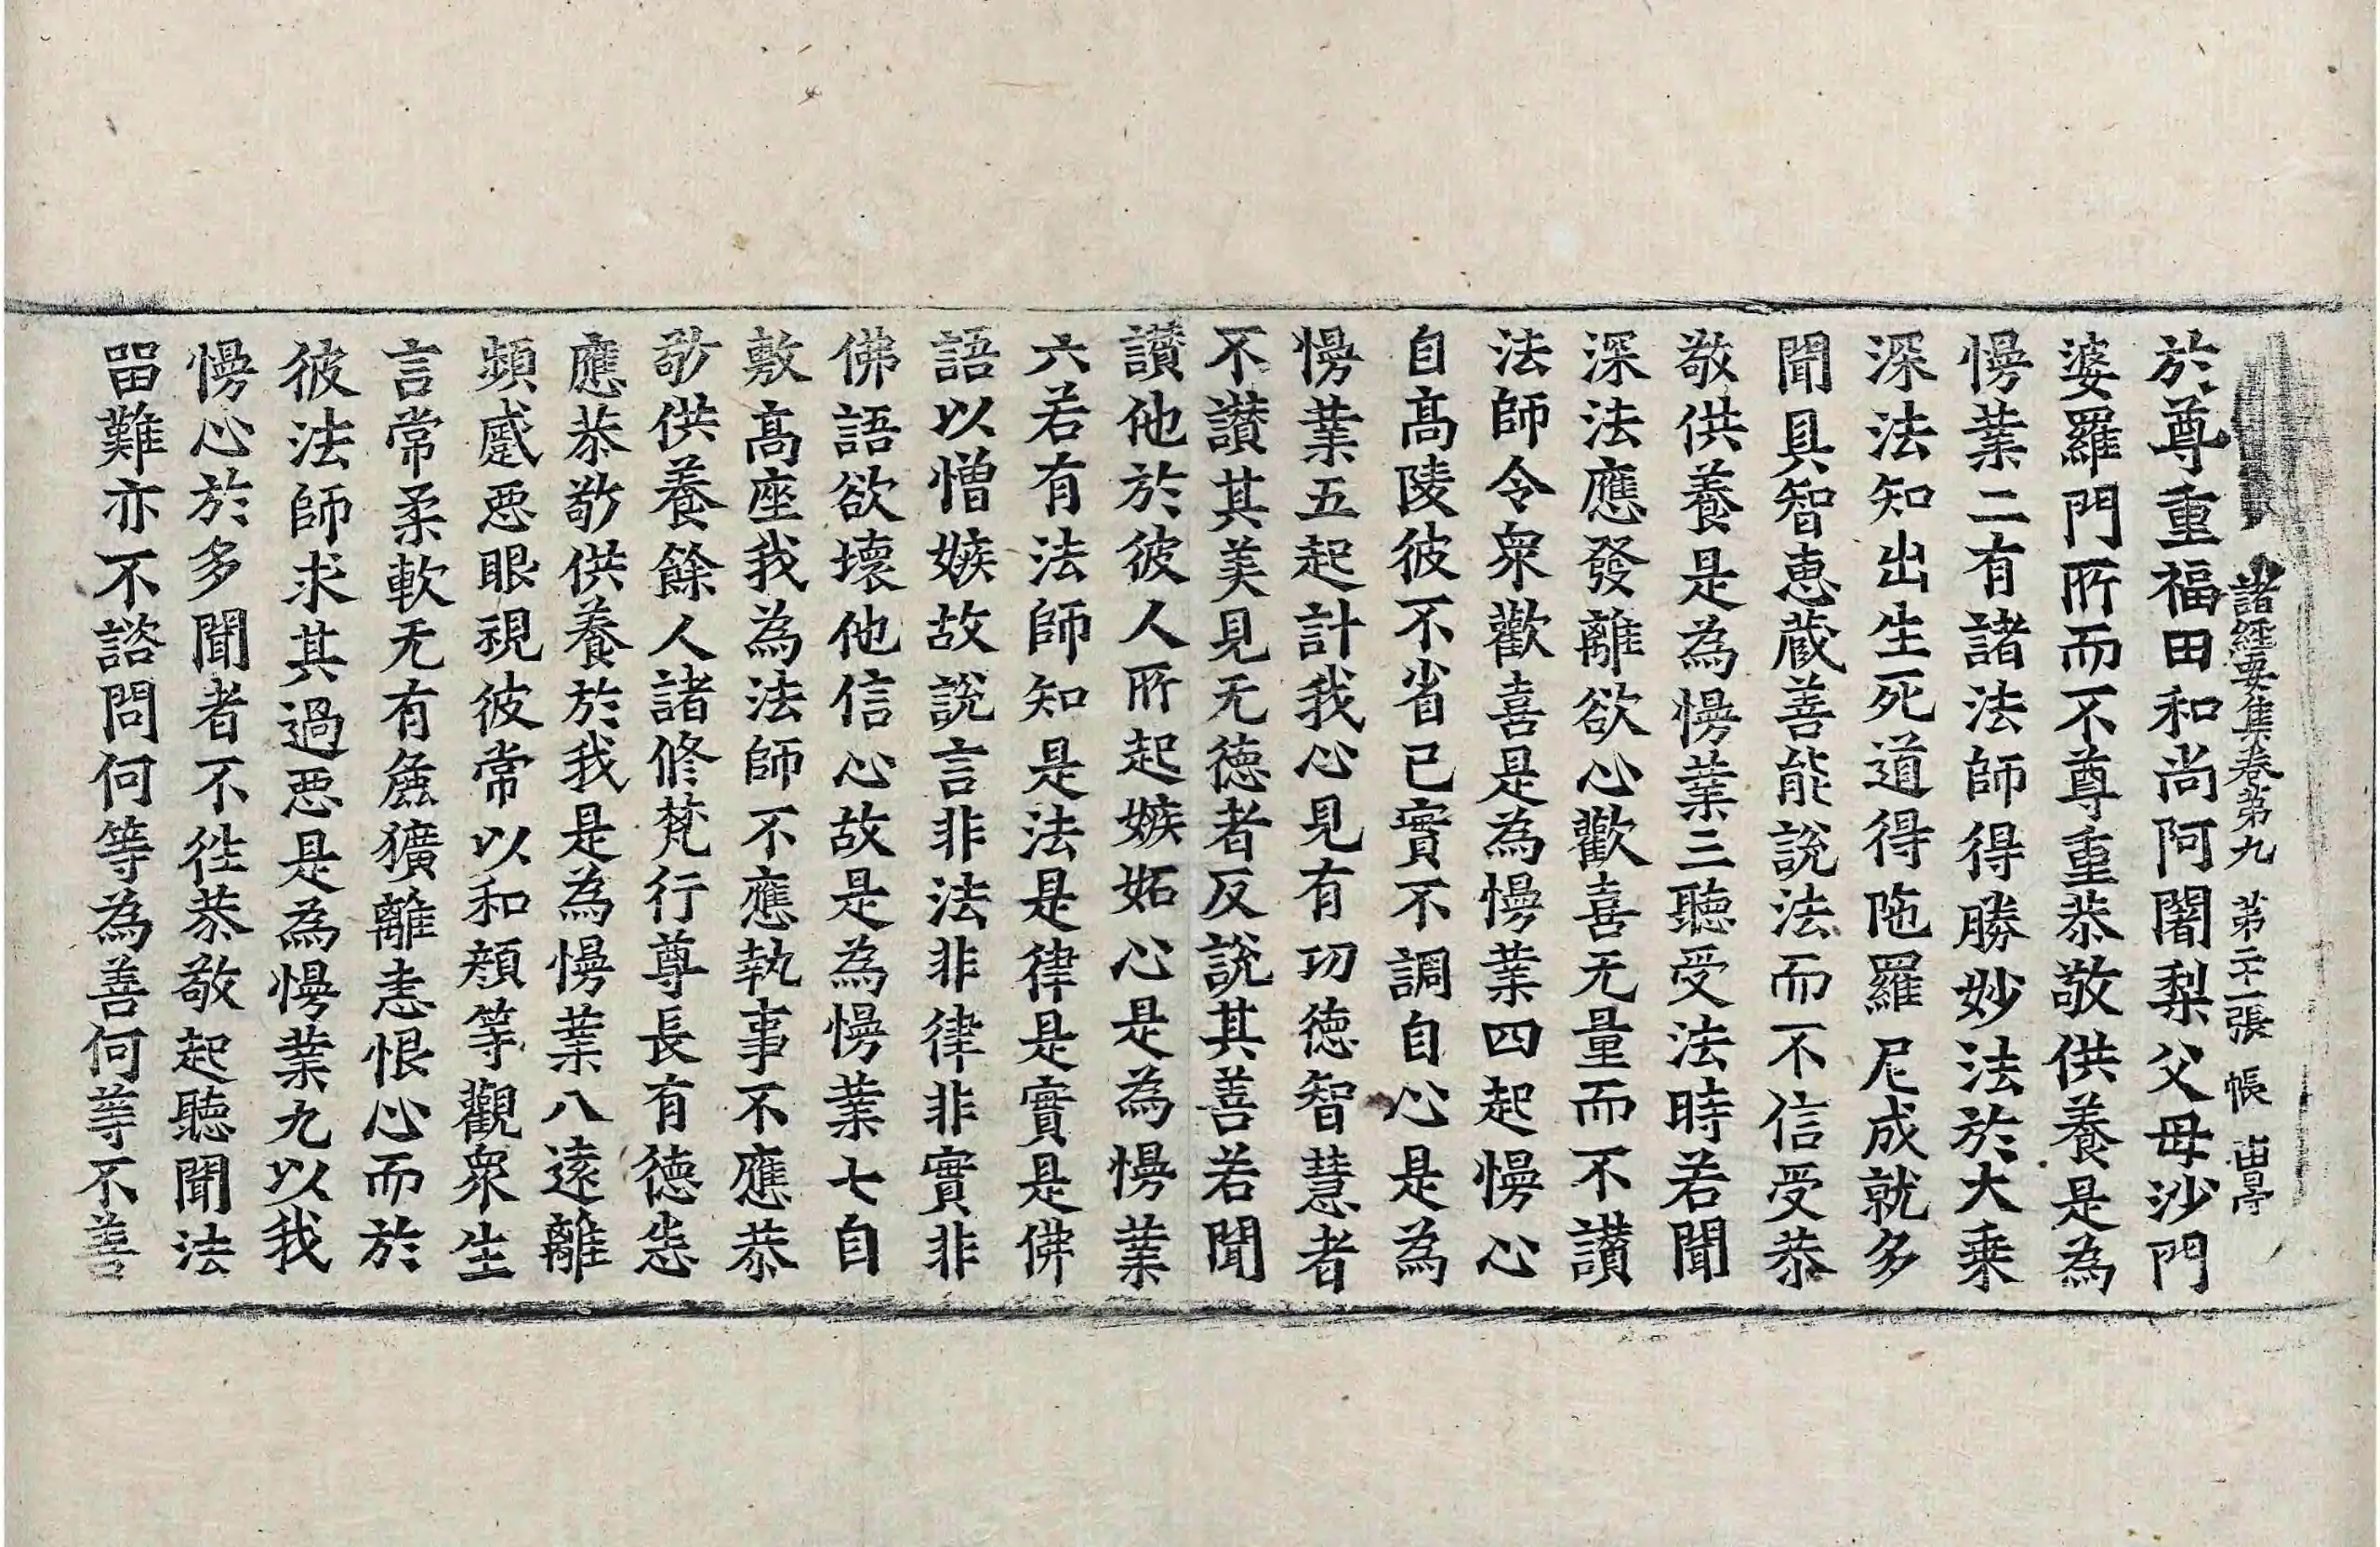 諸經要集卷第九 第二十一張 帳
於尊重福田和尚阿闍梨父母沙門
婆羅門所而不尊重恭敬供養是為
慢業二有諸法師得勝妙法於大乘
深法知出生死道得陁羅尼成就多
聞具智恵蔵善能說法而不信受恭
敬供養是為慢業三聽受法時若聞
深法應發離欲心歡喜无量而不讃
法師令衆歡喜是為慢業四起慢心
自高陵彼不省己實不調自心是為
慢業五起計我心見有功德智慧者
不讃其美見无德者反說其善若聞
讃他於彼人所起嫉妬心是為慢業
六若有法師知是法是律是實是佛
語以憎嫉故說言非法非律非實非
佛語欲壞他信心故是為慢業七自
敷高座我為法師不應執事不應恭
敬供養餘人諸修梵行尊長有德悉
應恭敬供養於我是為慢業八遠離
頻蹙惡眼視彼常以和顔等觀衆生
言常柔軟无有麁獷離恚恨心而於
彼法師求其過惡是為慢業九以我
慢心於多聞者不徃恭敬起聽聞法
留難亦不諮問何等為善何等不善